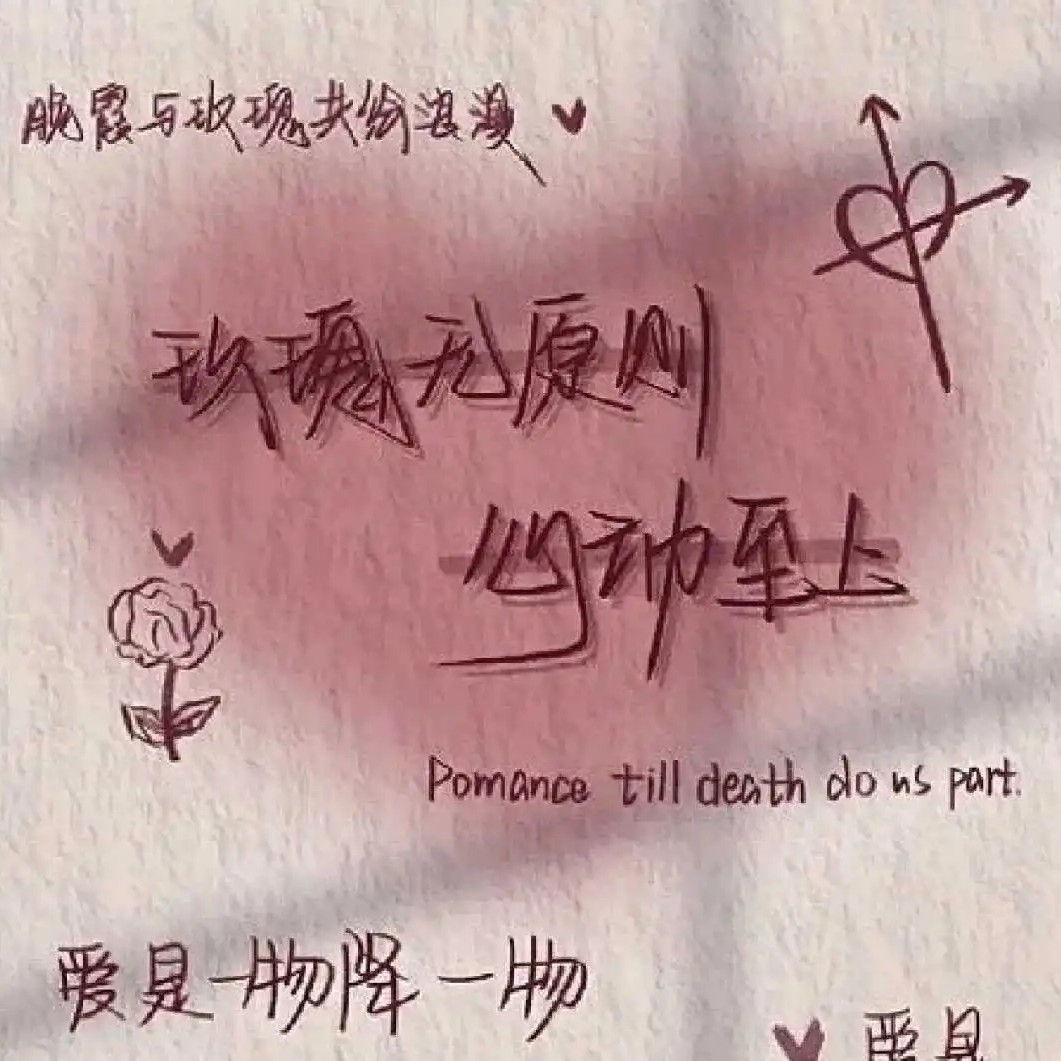 晚霞与玫瑰共绘浪漫
玫瑰无原则
心动至上
Pomance till death do us part.
爱是一物降一物
爱是